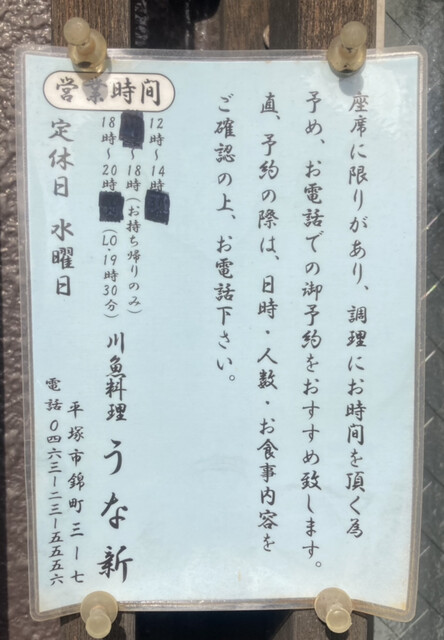 座席に限りがあり、調理にお時間を頂く為
予め、お電話での御予約をおすすめ致します。
直、予約の際は、日時・人数・お食事内容を
ご確認の上、お電話下さい。
営業時間
12時〜14時
〜18時(お持ち帰りのみ)
18時〜20時(LO・19時30分)
定休日 水曜日
川魚料理 うな新
平塚市錦町三ー七
電話0463ー23ー5556